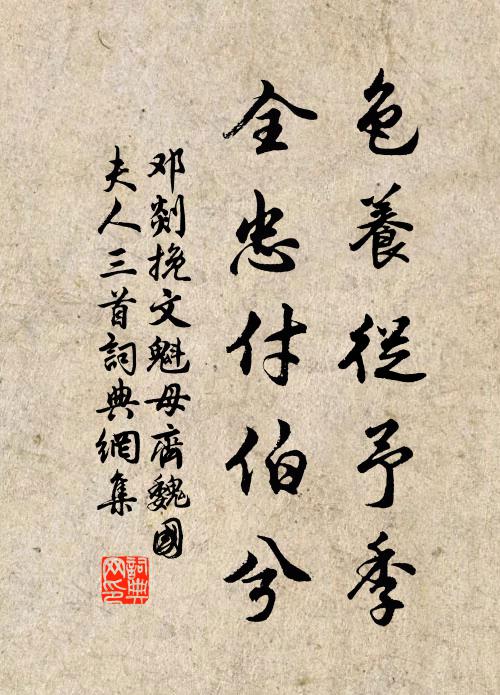 色養從予季
全忠付伯兮
邓剡挽文魁母齊魏國
夫人三首詞典網集
詞典
网印